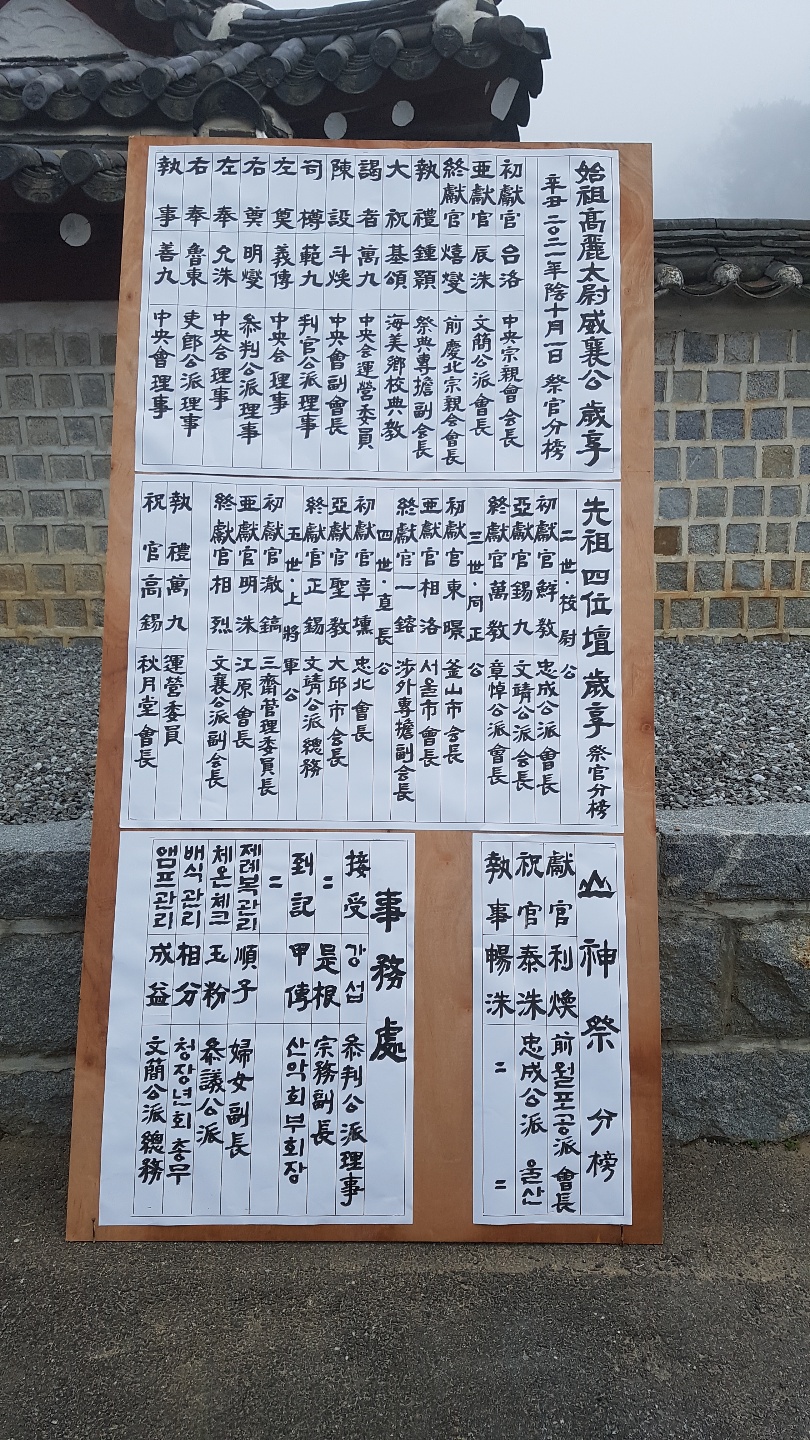 始祖高麗太尉威襄公 歲享
辛丑 二○二一年 陰十月一日 祭官分榜
初獻官 台洛 中央宗親會 會長
亞獻官 辰洙 文簡公派會長
終獻官 熺燮 前慶北宗親会會長
執禮 鍾顥 祭典專擔副会長
大祝 基頌 海美鄕校典敎
謁者 萬九 中央会運營委員
陳設 斗煥 中央會副會長
司樽 範九 判官公派理事
左奠 義傳 中央会 理事
右奠 明燮 叅判公派理事
左奉 允洙 中央会 理事
右奉 魯東 吏郎公派理事
執事 善九 中央會理事
先祖 四位壇 歲享 祭官分榜
二世·校尉公
初獻官 鮮敎 忠成公派會長
亞獻官 錫九 文靖公派会長
終獻官 萬敎 章悼公派會長
三世·同正公
初獻官 東暻 釜山市 会長
亜獻官 相洛 서울市 會長
終獻官 一鎔 涉外專擔副会長
四世·直長公
初獻官 章壎 忠北會長
亞獻官 聖敎 大邱市会長
終獻官 正錫 文靖公派 總務
五世·上將軍公
初獻官 澈鎬 三齋管理委員長
亜獻官 明洙 江原會長
終獻官 相烈 文襄公派副会長
執禮 萬九 運營委員
祝官 高錫 秋月堂會長
山神祭 分榜
獻官 利煥 前월포공派 會長
祝官 泰洙 忠成公派 울산
執事 暢洙 〃 〃
事務處
接受 강섭 叅判公派理事
〃 是根 宗務副長
到記 甲傳 산악회부회장
〃
제례복관리 順子 婦女副長
체온체크 玉粉 叅議公派
배식관리 相分 청장년회 총무
앰프관리 成益 文簡公派總務